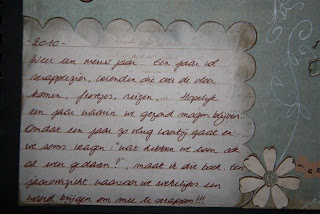 - 2010 -
Weer een nieuw jaar. Een jaar vol
scrapplezier, vrienden die over de vloer
komen, feestjes, reizen, ... Hopelijk
een jaar waarin we gezond mogen blijven.
Omdat een jaar zo vlug voorbij gaat en
we soms vragen: "wat hebben we toen ook
al weer gedaan?", maak ik dit boek. Een
jaaroverzicht waarvoor we wekelijks een
woord krijgen om mee te scrappen!!!